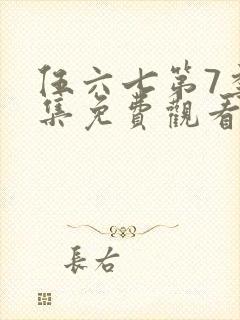 伍六七第7季
集免費觀看
長右